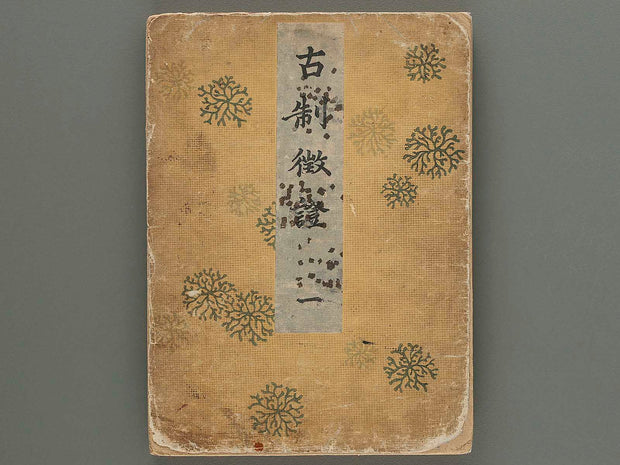 古制徴證 一